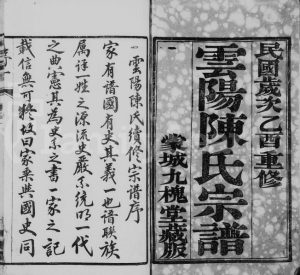 民國歲次乙酉重修
雲陽陳氏宗譜
蒙城九槐堂藏版
雲陽陳氏續修宗譜序
家有譜國有史其義一也譜聯族
属詳一姓之源流史嚴系統明一代
之典憲其為史不之書一家之記
載信無可移故曰家乘與國史同